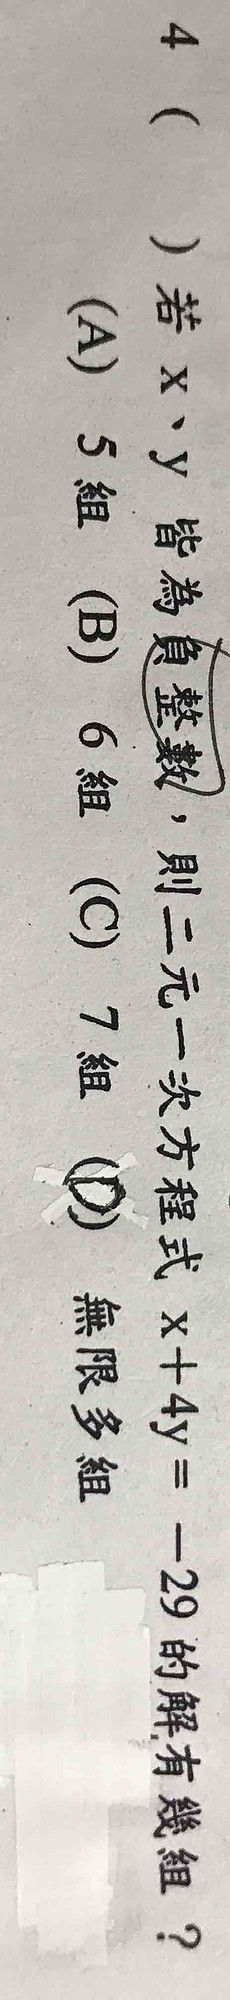 4 (  ) 若 x、y 皆為負整數，則二元一次方程式 x＋4y＝－29 的解有幾組？
(A) 5 組 (B) 6 組 (C) 7 組 (D) 無限多組